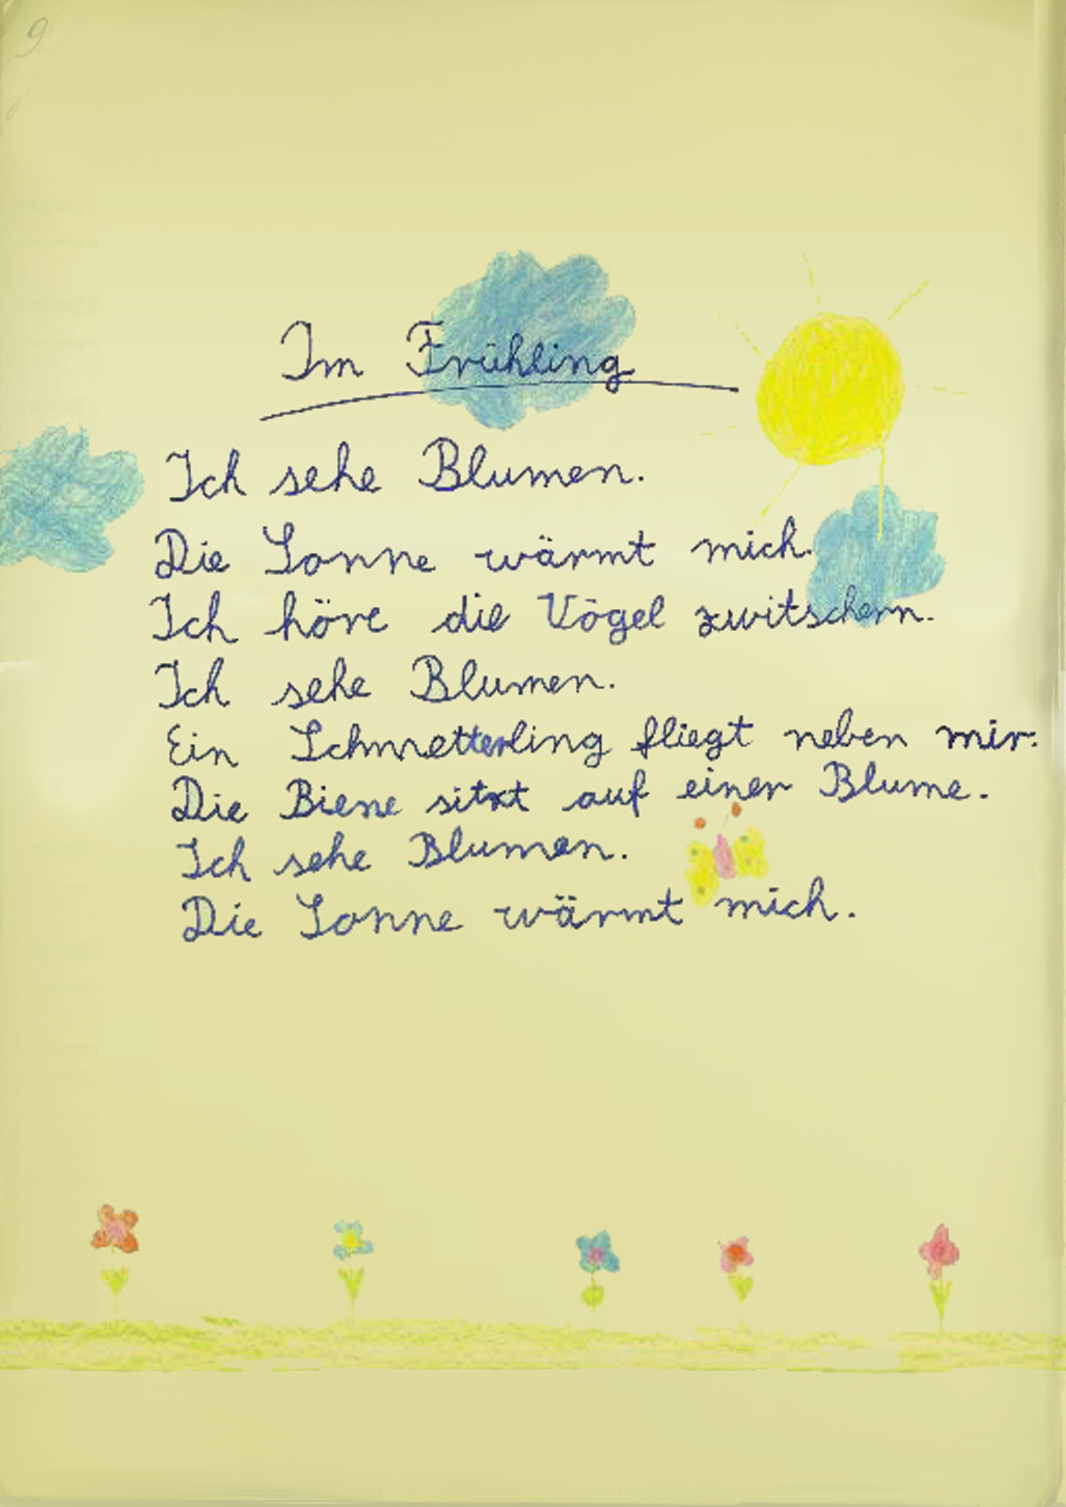 9.
Im Frühling
Ich sehe Blumen.
Die Sonne wärmt mich.
Ich höre die Vögel zwitschern.
Ich sehe Blumen.
Ein Schmetterling fliegt neben mir.
Die Biene sitzt auf einer Blume.
Ich sehe Blumen.
Die Sonne wärmt mich.